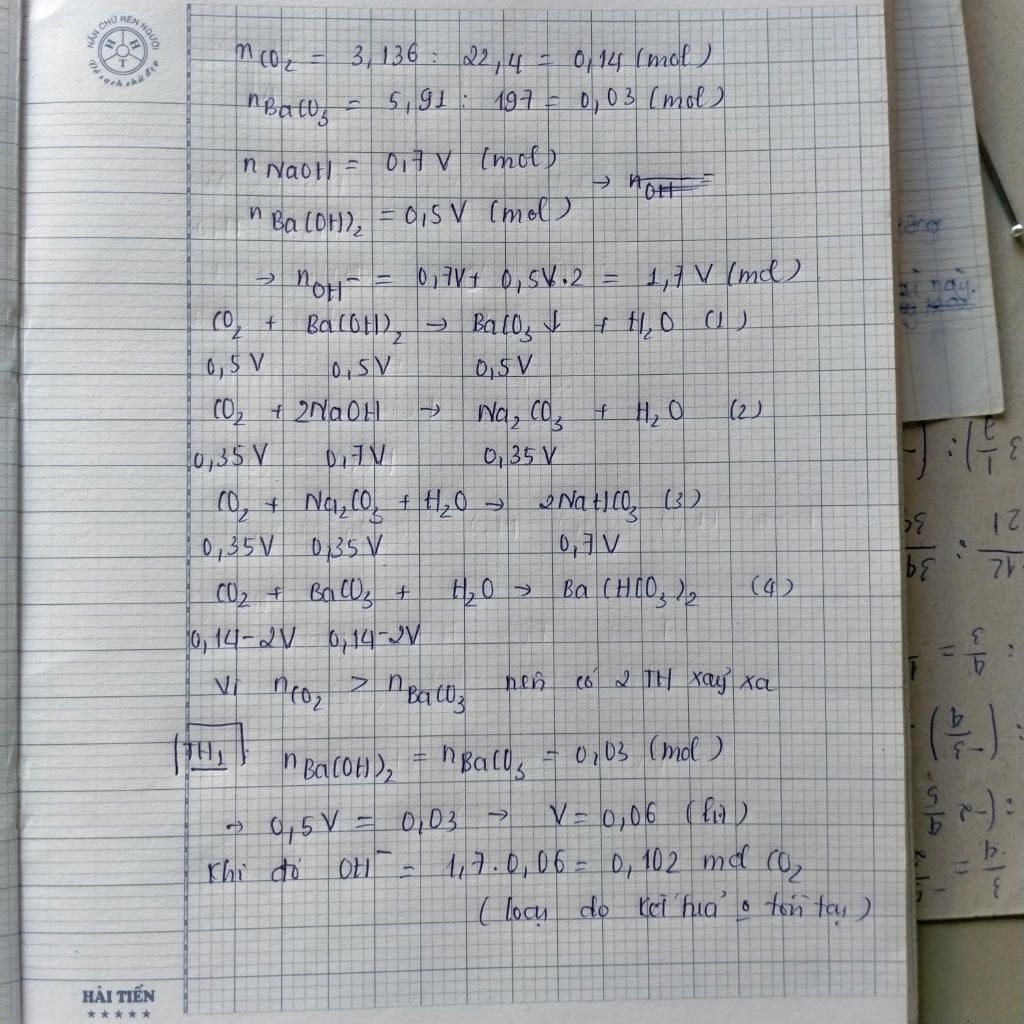 NẮN CHỮ RÈN NGƯỜI
H H T
n CO2 = 3,136 : 22,4 = 0,14 (mol)
n BaCO3 = 5,91 : 197 = 0,03 (mol)
n NaOH = 0,7 V (mol)
→ n OH =
n Ba(OH)2 = 0,5 V (mol)
→ n OH⁻ = 0,7V + 0,5V.2 = 1,7 V (mol)
CO2 + Ba(OH)2 → BaCO3 ↓ + H2O (1)
0,5 V 0,5 V 0,5 V
CO2 + 2NaOH → Na2CO3 + H2O (2)
0,35 V 0,7 V 0,35 V
CO2 + Na2CO3 + H2O → 2NaHCO3 (3)
0,35 V 0,35 V 0,7 V
CO2 + BaCO3 + H2O → Ba(HCO3)2 (4)
0,14-2V 0,14-2V
Vì n CO2 > n BaCO3 nên có 2 TH xảy xa
TH1 : n Ba(OH)2 = n BaCO3 = 0,03 (mol)
→ 0,5 V = 0,03 → V = 0,06 (lít)
Khi đó OH⁻ = 1,7.0,06 = 0,102 mol CO2
(loại do kết tủa o tồn tại)
HẢI TIẾN
này.
3 1/2) : (-
21
39
-12
: 4/3 = 1
: (-3/4)
: (-2 4/5
3/4 = -